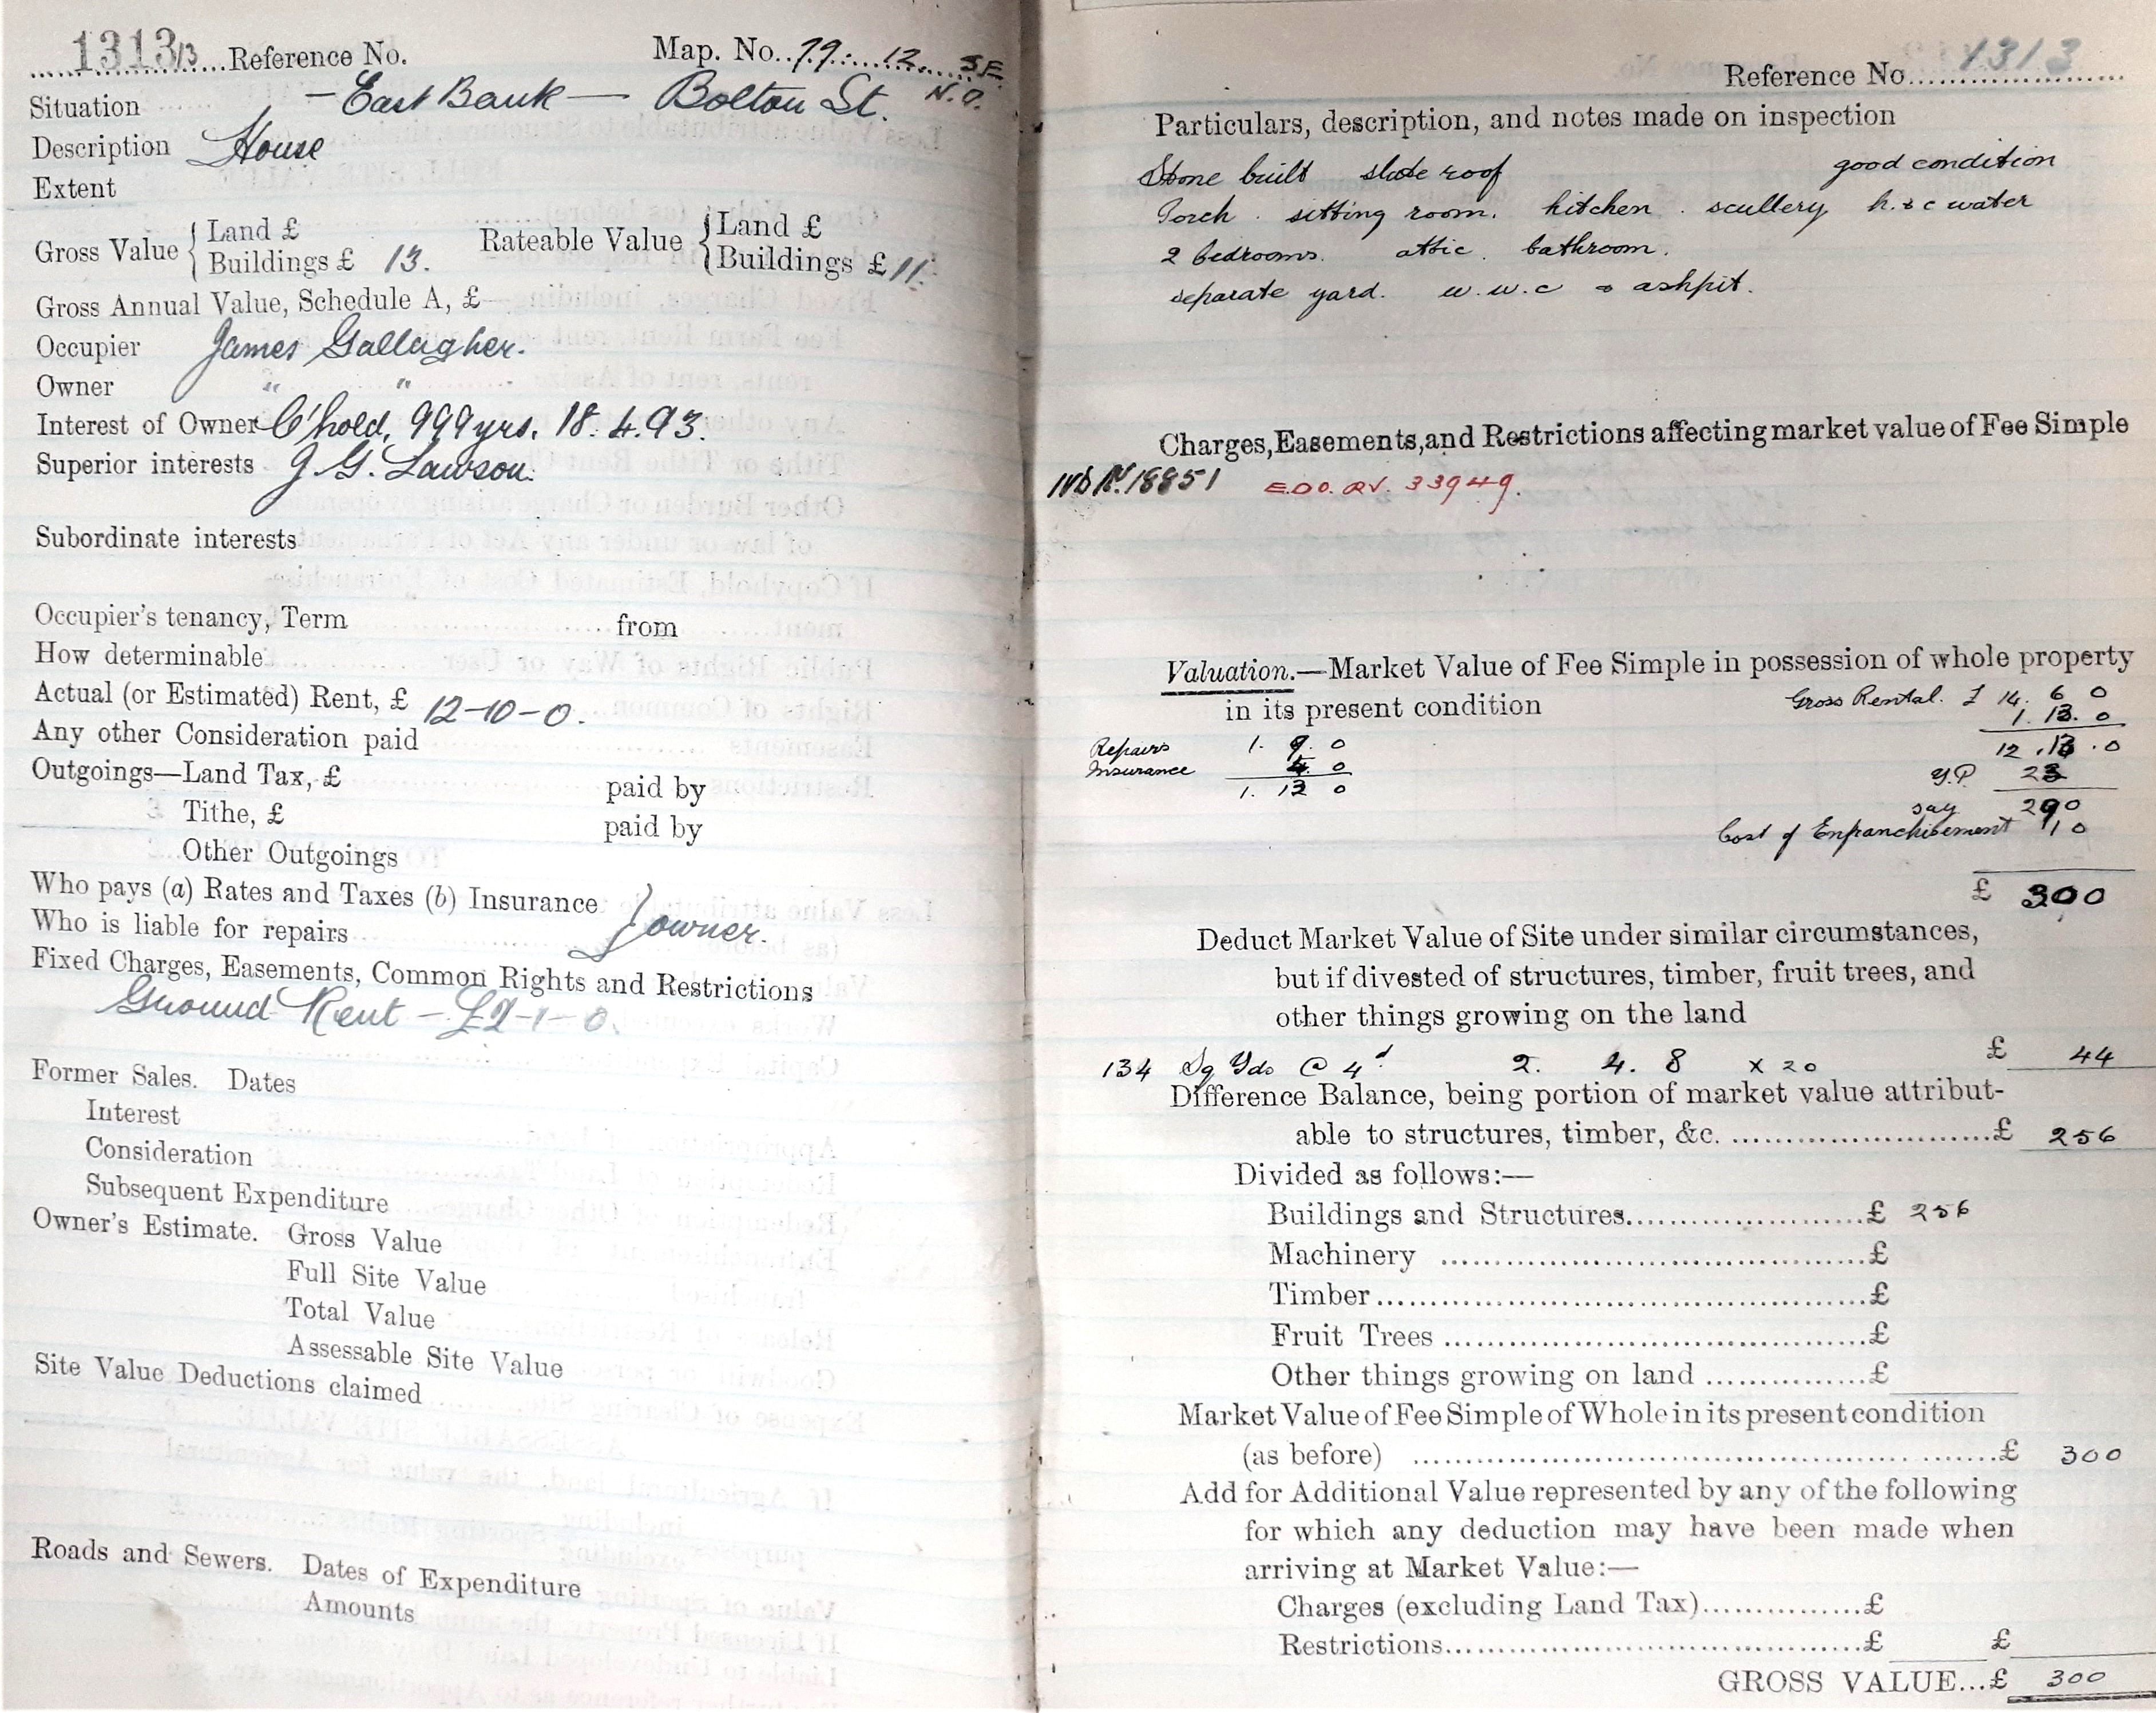 1313/3 Reference No. Map. No. 79. 12. S.E.
N.O.
Situation — East Bank — Bolton St.
Description House
Extent
Gross Value { Land £ Rateable Value { Land £
Buildings £ 13. Buildings £ 11.
Gross Annual Value, Schedule A, £
Occupier James Gallagher.
Owner " "
Interest of Owner C'hold, 999 yrs. 18.4.93.
Superior interests J. G. Lawson.
Subordinate interests
Occupier's tenancy, Term from
How determinable
Actual (or Estimated) Rent, £ 12-10-0.
Any other Consideration paid
Outgoings—Land Tax, £ paid by
Tithe, £ paid by
Other Outgoings
Who pays (a) Rates and Taxes (b) Insurance
Who is liable for repairs } owner.
Fixed Charges, Easements, Common Rights and Restrictions
Ground Rent — £2-1-0.
Former Sales. Dates
Interest
Consideration
Subsequent Expenditure
Owner's Estimate. Gross Value
Full Site Value
Total Value
Assessable Site Value
Site Value Deductions claimed
Roads and Sewers. Dates of Expenditure
Amounts
Reference No. 1313
Particulars, description, and notes made on inspection
Stone built slate roof good condition
Porch . sitting room. kitchen . scullery h. & c water
2 bedrooms. attic . bathroom.
separate yard. w.w.c & ashpit.
Charges, Easements, and Restrictions affecting market value of Fee Simple
18851 E.D.O. RV. 33949.
Valuation.—Market Value of Fee Simple in possession of whole property
in its present condition Gross Rental. £ 14. 6 0
1. 13. 0
Repairs 1. 9. 0 12. 13. 0
Insurance 4. 0 Y.P 23
1. 13 0
say 290
Cost of Enfranchisement 10
£ 300
Deduct Market Value of Site under similar circumstances,
but if divested of structures, timber, fruit trees, and
other things growing on the land
134 Sq Yds @ 4d 2. 4. 8 x 20 £ 44
Difference Balance, being portion of market value attribut-
able to structures, timber, &c. £ 256
Divided as follows:—
Buildings and Structures £ 256
Machinery £
Timber £
Fruit Trees £
Other things growing on land £
Market Value of Fee Simple of Whole in its present condition
(as before) £ 300
Add for Additional Value represented by any of the following
for which any deduction may have been made when
arriving at Market Value:—
Charges (excluding Land Tax) £
Restrictions £ £
GROSS VALUE...£ 300